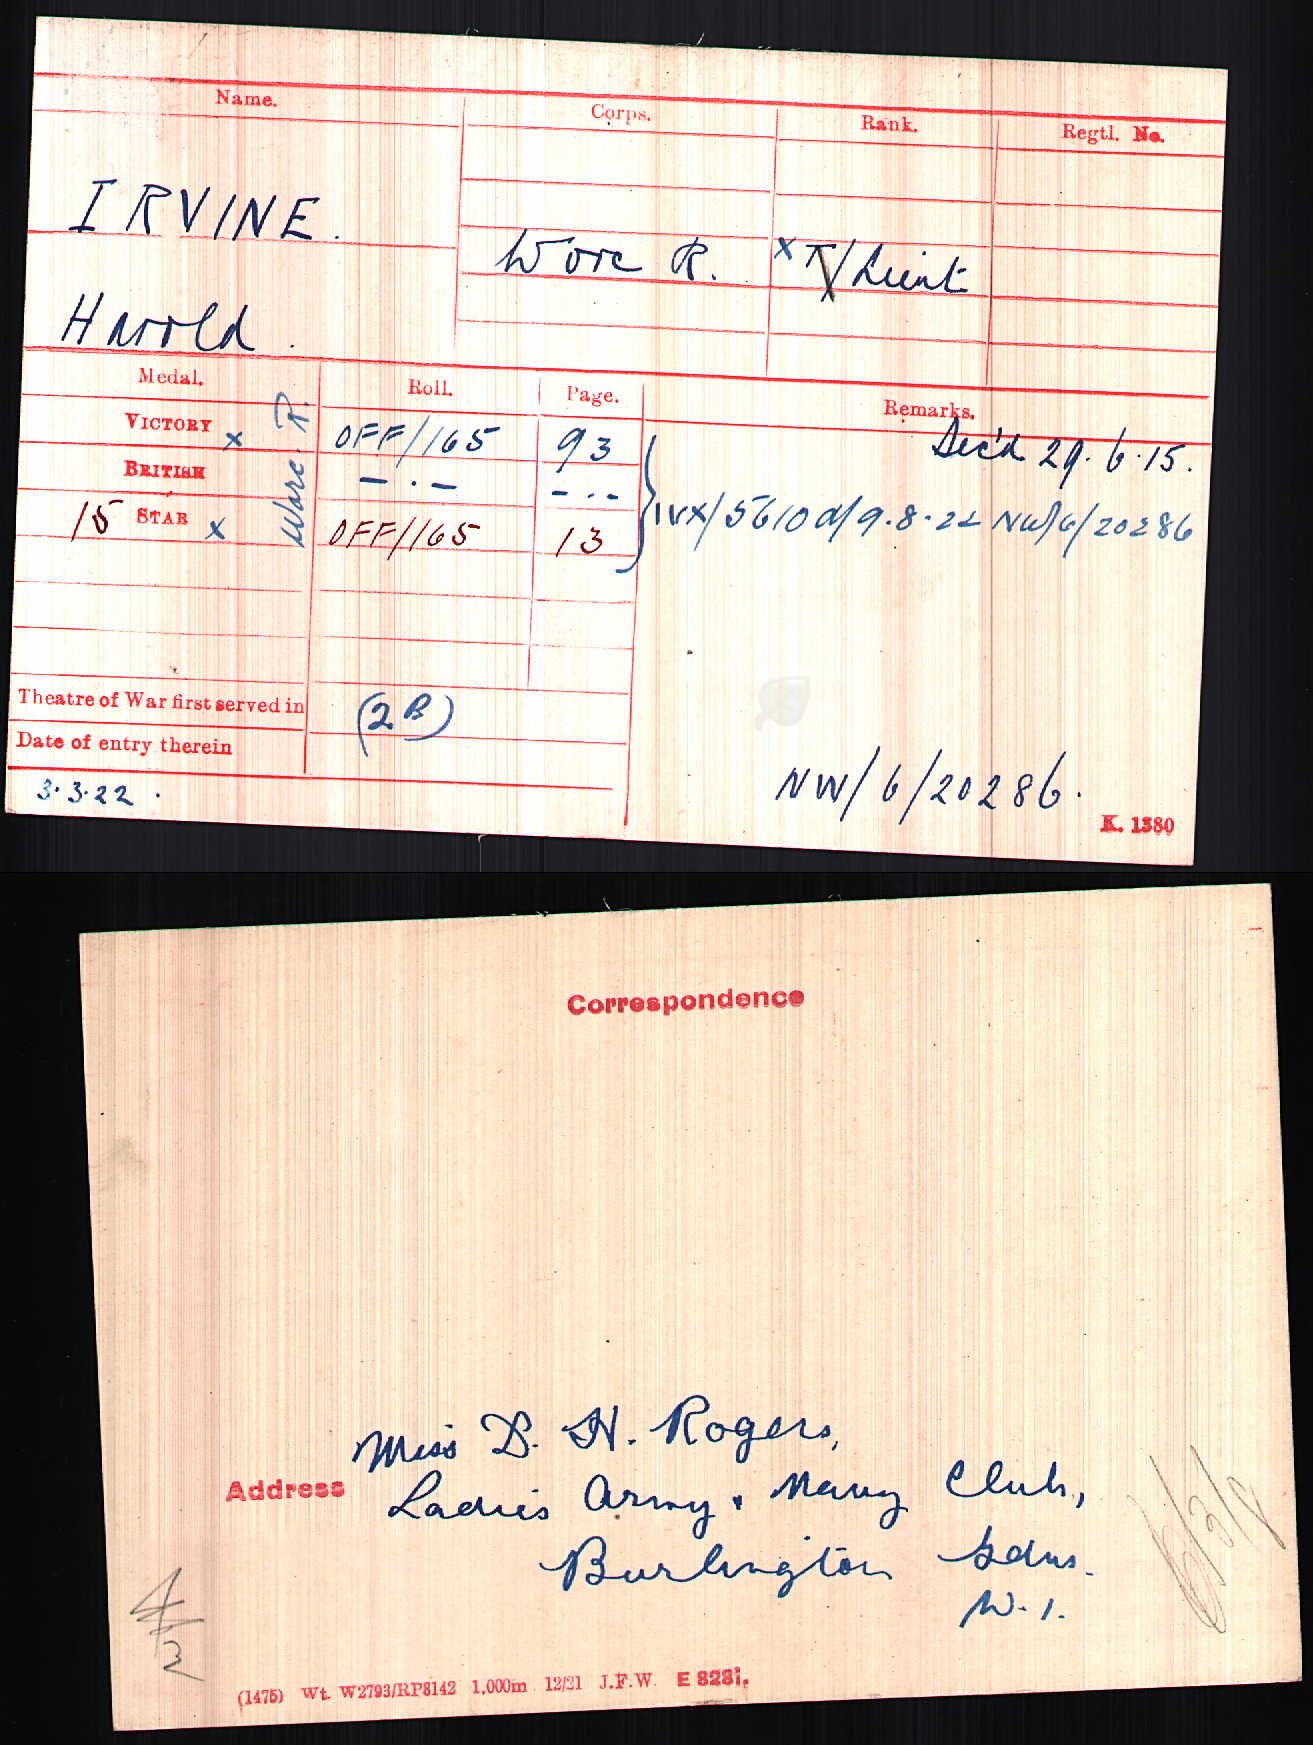 Name.
Corps.
Rank.
Regtl. No.
IRVINE.
Worc R.
x T/Lieut
Harold.
Medal.
Roll.
Page.
Remarks.
VICTORY x
OFF/165
93
Dec'd 29.6.15.
BRITISH
— . —
— . —
15 STAR x
OFF/165
13
IVX/5610 d/9.8.22 NW/6/20286
Worc. R.
Theatre of War first served in
(2B)
Date of entry therein
3.3.22.
NW/6/20286.
K. 1380
Correspondence
Address
Miss D. H. Rogers,
Ladies Army & Navy Club,
Burlington Gdns.
W.1.
(1475) Wt. W2793/RP8142 1,000m 12/21 J.F.W. E 8281.